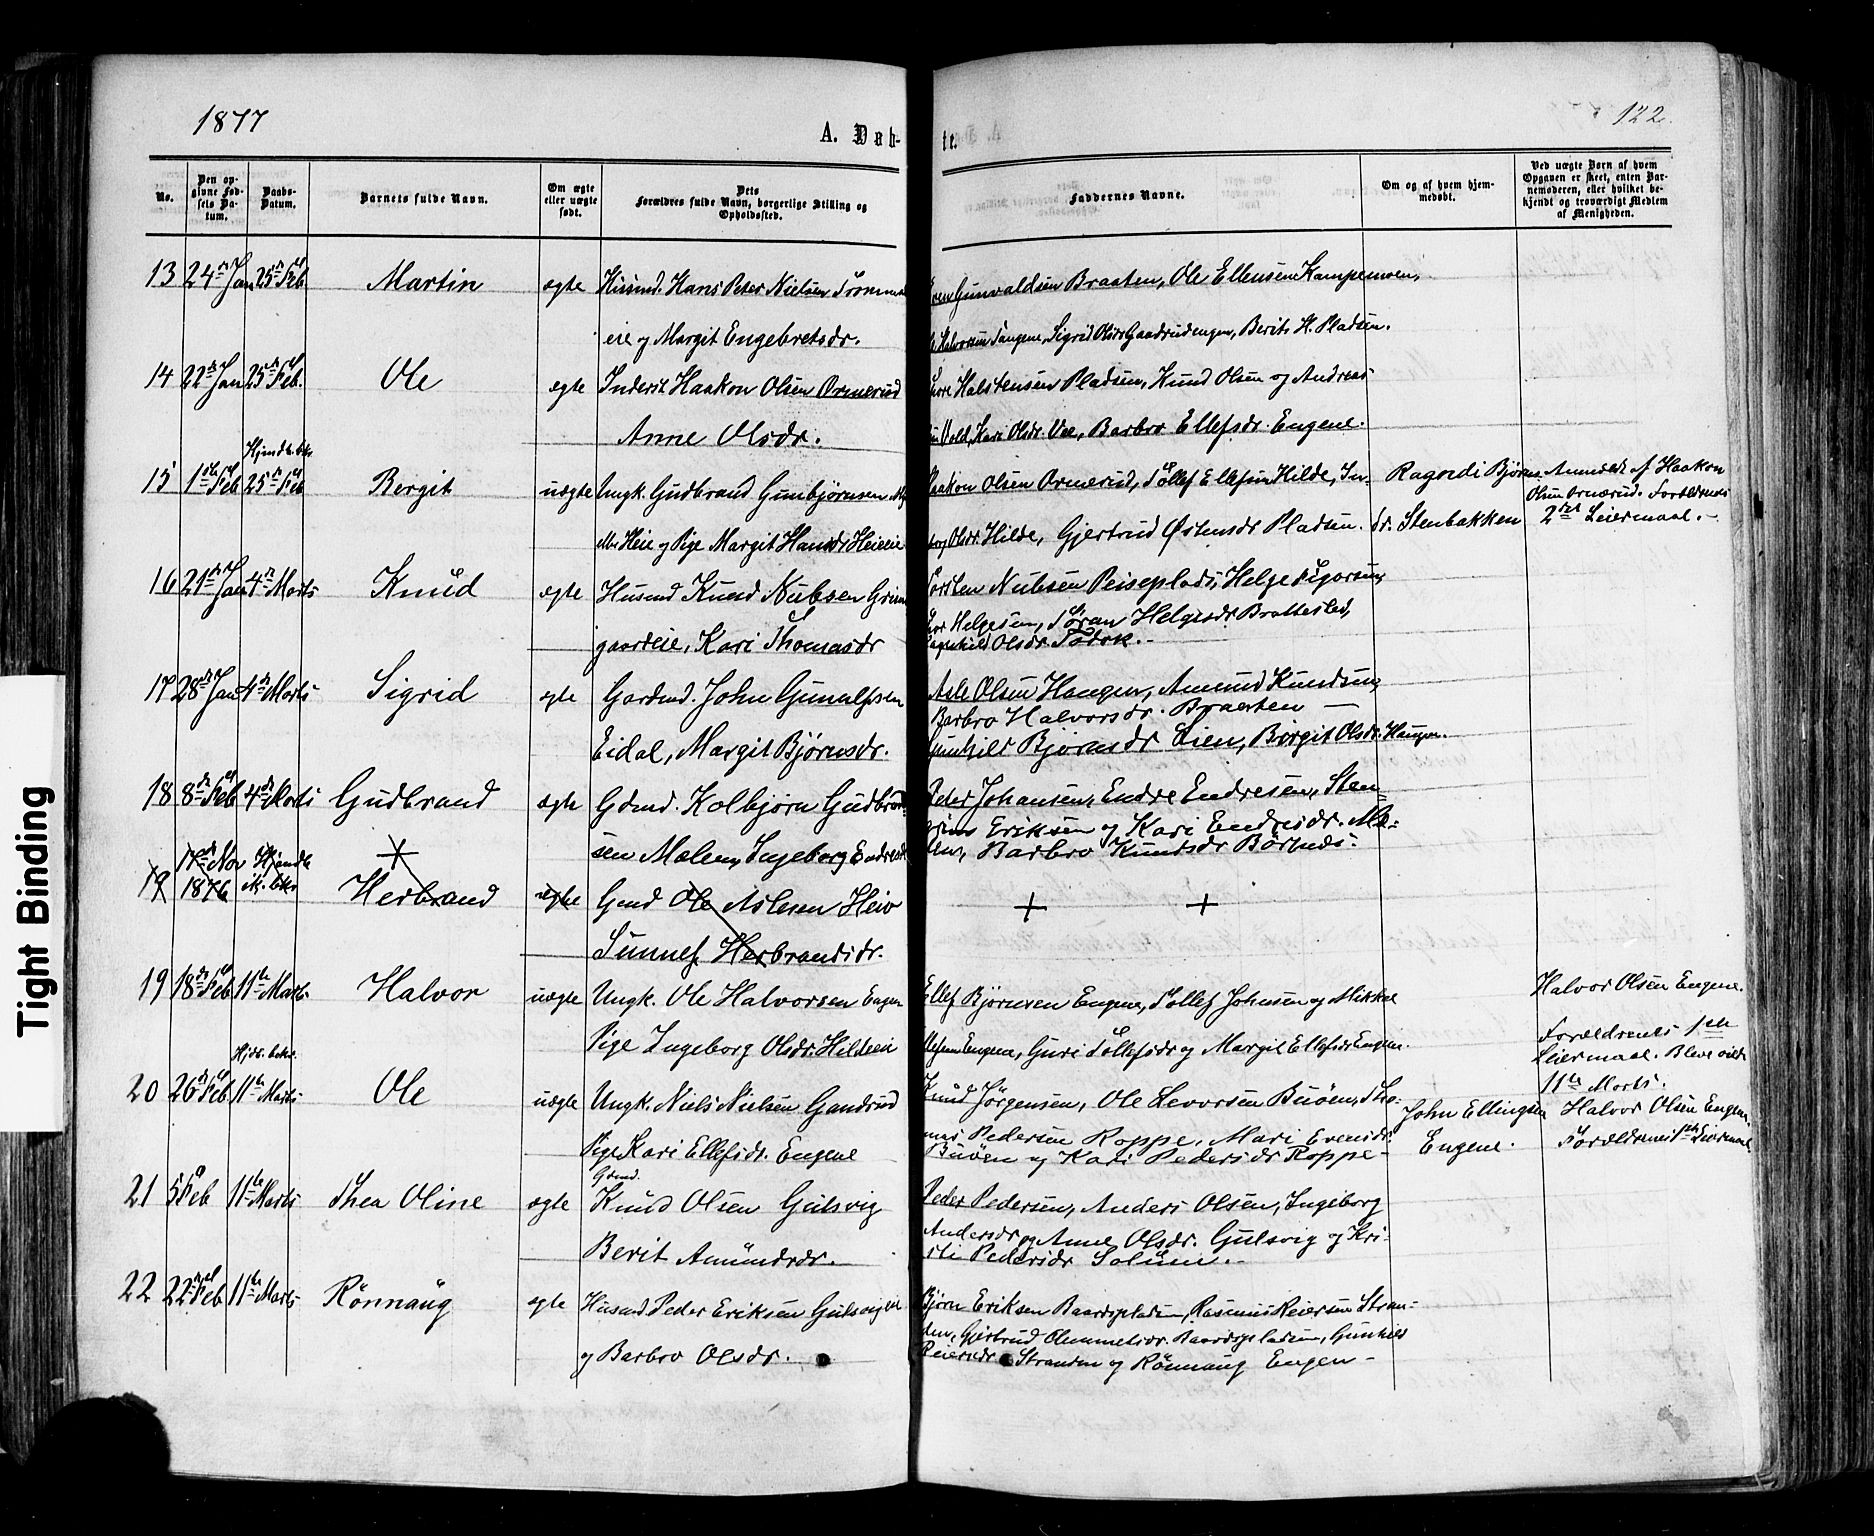 1877
122.
A. Døb-
te.
No.
Den op-
givne Fød-
sels Da-
tum.
Daabs-
Datum.
Barnets fulde Navn.
Om ægte
eller uægte
født.
Dets
Forældres fulde Navn, borgerlige Stilling og
Opholdssted.
Faddernes Navne.
Om og af hvem hjem-
medøbt.
Ved uægte Børn af hvem
Opgaven er skeet, enten Bar-
nemoderen, eller hvilket be-
kjendt og troværdigt Medlem
af Menigheden.
13 24de Jan 25de Feb Martin ægte Husmd. Hans Peter Nielsen
Gunvaldsen Braaten, Ole Ellensen Kampemoen,
eie og Margit Engebretsdr.
Halvorsen Tangene, Sigrid Olsdr Gaadrudengen, Berit H. Pladsen.
14 22de Jan 25de Feb. Ole ægte Inderst Haakon Olsen Ormerud
Halstensen Pladsen, Knud Olsen og Andreas
Anne Olsdr.
Vold, Kari Olsdr. Vee, Barbro Ellefsdr. Engene.
Hjemdb. beks
15 1ste Feb 25de Feb Bergit uægte Ungk. Gudbrand Gunbjørnsen
Haakon Olsen Ormerud, Tollef Ellefsen Hilde, In-
Ragndi Bjørns-
Anmeldt af Haakon
Olsen Ormerud. Forældrenes
Heie og Pige Margit Hansdr Heieeie
Olsdr. Hilde, Gjertrud Østensdr Pladsen.
dr. Stenbakken
2det Leiermaal.-
16 21de Jan 4de Marts Knud ægte Husmd Knud Nubsen Grim-
Torsten Nubsen Peiseplads, Helge
gaardeie, Kari Thomasdr
Tor Helgesen, Helgesdr Brattested,
Ragnhild Olsdr
17 28de Jan 4de Marts Sigrid ægte Gardmd. John Gunulfsen
Asle Olsen Haugen, Amund Knudsen,
Barbro Halvorsdr. Braaten —
Eidal, Margit Bjørnsdr.
Gunhild Bjørnsdr Lien, Birgit Olsdr. Haugen.
18 8de Feb 4de Marts Gudbrand ægte Gdmd. Kolbjørn Gudbrand-
Peder Johansen, Endre Endresen, Sten-
Eriksen og Kari Endresdr. Mo-
sen Moleen, Ingeborg Endresdr
len, Barbro Knudsdr Børtnes.
17de Nov Hjemdb
19 1876 M. beks Herbrand ægte Gmd Ole Aslesen Heie
Sunnef Herbrandsdr.
19 18de Feb 11te Marts Halvor uægte Ungk. Ole Halvorsen Engen
Ellef Bjørnsen Engene, Tollef Johnsen og Mikkel
Halvor Olsen Engene.
Pige Ingeborg Olsdr. Hildeeie
Engene, Guri Tollefsdr og Margit Ellefsdr Engene.
Forældrenes 1ste
Leiermaal. Bleve viede
11te Marts.
Hjdb. beks.
20 26de Feb 11te Marts Ole uægte Ungk. Niels Nielsen Gandrud
Knud Jørgensen, Ole Levorsen Buøen, Tho-
John Ellingsen
Halvor Olsen Engene
Pige Kari Ellefsdr. Engene
mas Pedersen Roppe, Mari Evensdr.
Buøen og Kari Pedersdr Roppe-
Engene.
Forældrenes 1ste Leiermaal
21 5 Feb 11te Marts Thea Oline ægte
Gdmd.
Knud Olsen Gulsvig
Peder Pedersen, Anders Olsen, Ingeborg
Andersdr og Anne Olsdr. Gulsvig og Kri-
Berit Amundsdr.
sti Pedersdr Solum.-
22 22de Feb 11te Marts Rønnaug ægte Husmd. Peder Eriksen Gulsvigeie
Bjørn Eriksen Baardspladsen, Rasmus Reiersen Stran-
den, Gjertrud Baardspladsen, Gunhild
og Barbro Olsdr.
Reiersdr Stranden og Rønnaug Engen-
Tight Binding